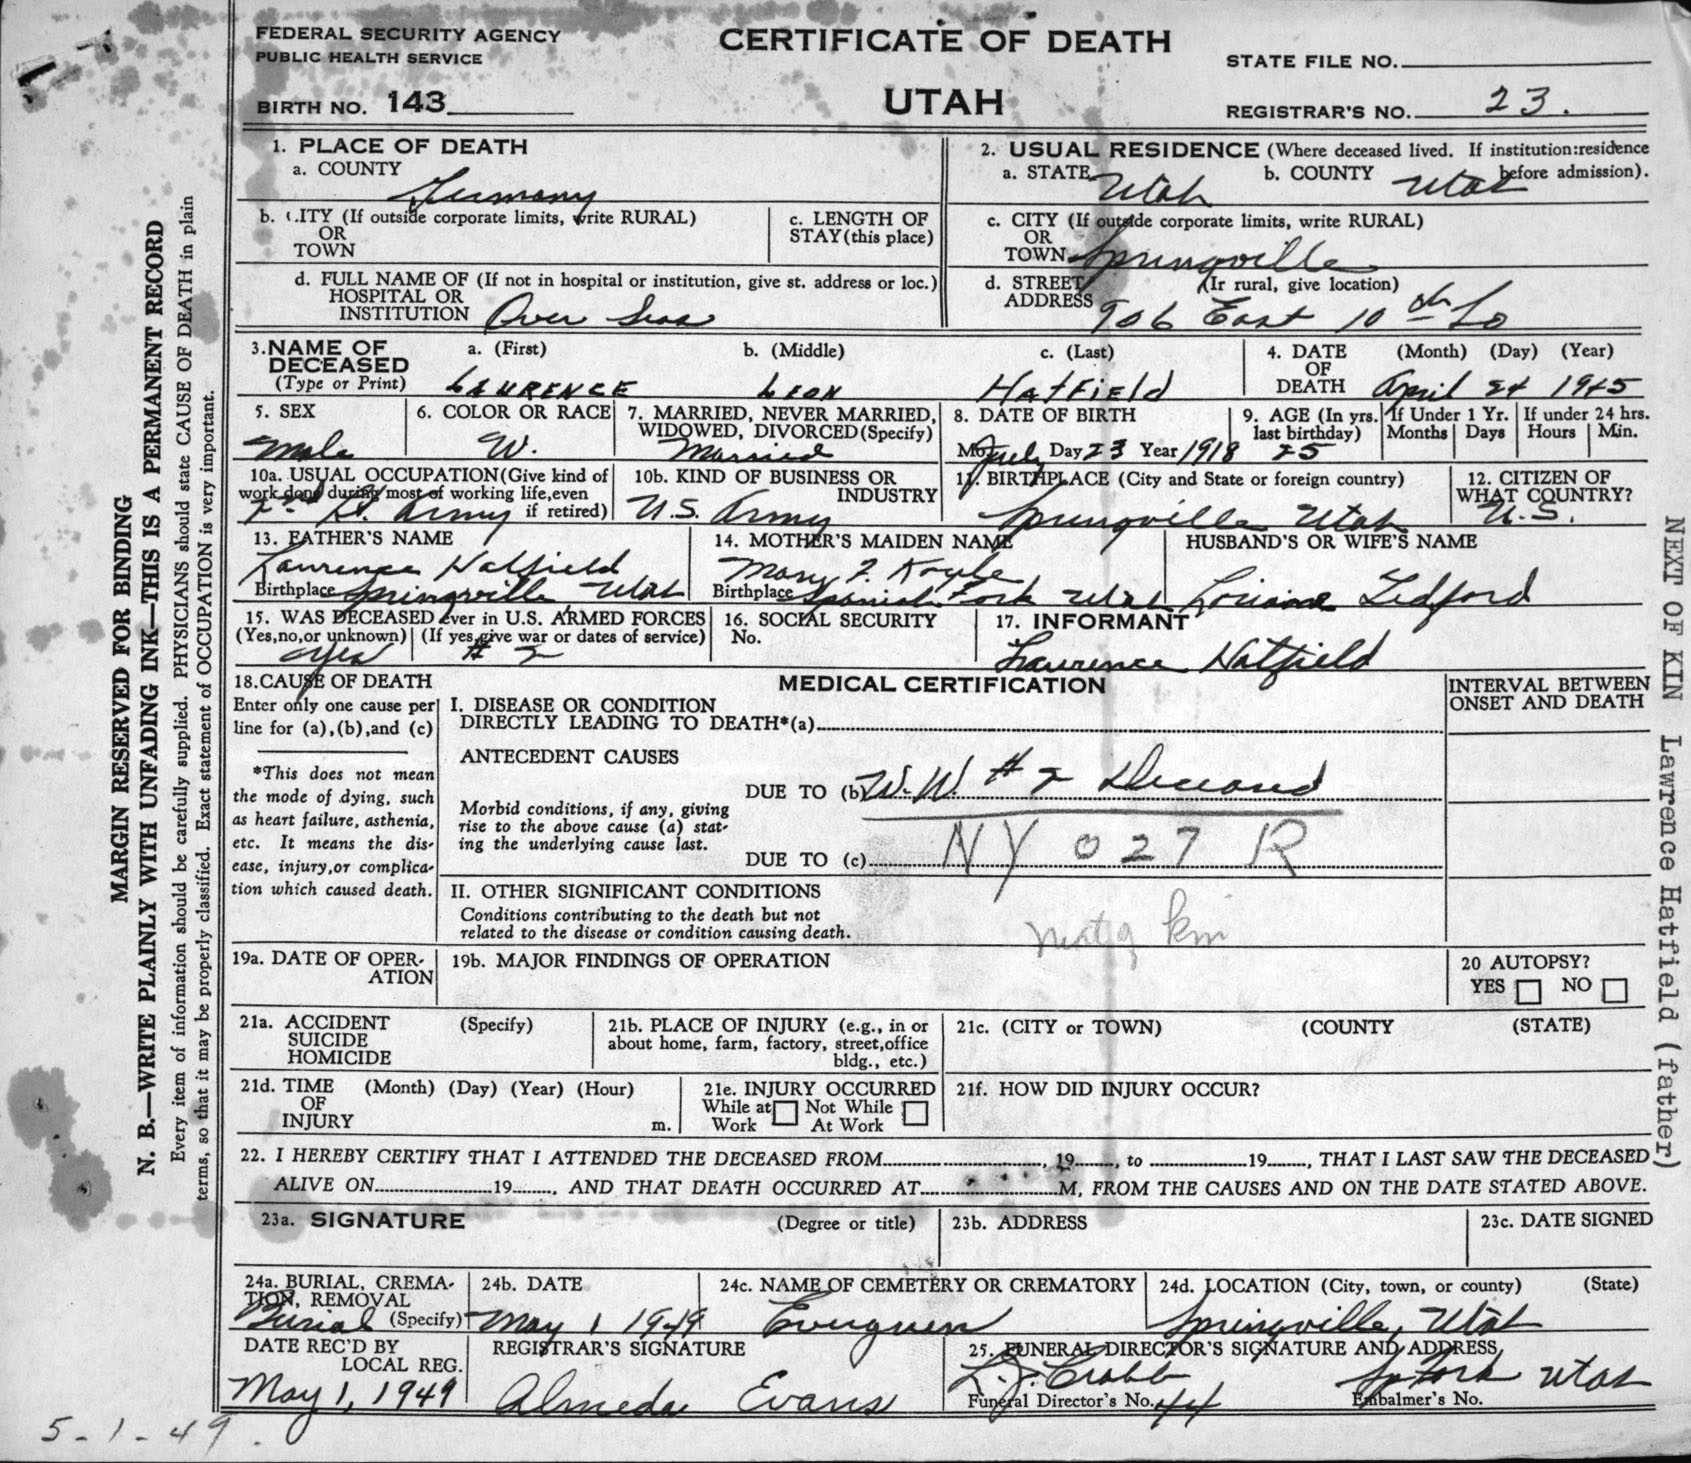 FEDERAL SECURITY AGENCY
PUBLIC HEALTH SERVICE
CERTIFICATE OF DEATH
UTAH
STATE FILE NO.
BIRTH NO. 143
REGISTRAR'S NO. 23.
1. PLACE OF DEATH
a. COUNTY
Germany
2. USUAL RESIDENCE (Where deceased lived. If institution:residence before admission).
a. STATE Utah b. COUNTY Utah
b. CITY (If outside corporate limits, write RURAL)
OR
TOWN
c. LENGTH OF
STAY (this place)
c. CITY (If outside corporate limits, write RURAL)
OR
TOWN Springville
d. FULL NAME OF (If not in hospital or institution, give st. address or loc.)
HOSPITAL OR
INSTITUTION Over Seas
d. STREET (If rural, give location)
ADDRESS 906 East 10th So
3. NAME OF
DECEASED
(Type or Print)
a. (First) b. (Middle) c. (Last)
LAURENCE LEON HATFIELD
4. DATE (Month) (Day) (Year)
OF
DEATH April 24 1945
5. SEX
Male
6. COLOR OR RACE
W.
7. MARRIED, NEVER MARRIED,
WIDOWED, DIVORCED (Specify)
Married
8. DATE OF BIRTH
Mo. July Day 23 Year 1918
9. AGE (In yrs.
last birthday)
25
If Under 1 Yr.
Months Days
If under 24 hrs.
Hours Min.
10a. USUAL OCCUPATION (Give kind of
work done during most of working life, even
if retired)
2nd Lt. Army
10b. KIND OF BUSINESS OR
INDUSTRY
U.S. Army
11. BIRTHPLACE (City and State or foreign country)
Springville Utah
12. CITIZEN OF
WHAT COUNTRY?
U.S.
13. FATHER'S NAME
Lawrence Hatfield
Birthplace Springville Utah
14. MOTHER'S MAIDEN NAME
Mary F. Koyle
Birthplace Spanish Fork Utah
HUSBAND'S OR WIFE'S NAME
Ledford
15. WAS DECEASED ever in U.S. ARMED FORCES
(Yes, no, or unknown) (If yes, give war or dates of service)
yes # 2
16. SOCIAL SECURITY
No.
17. INFORMANT
Lawrence Hatfield
18. CAUSE OF DEATH
Enter only one cause per
line for (a), (b), and (c)
*This does not mean
the mode of dying, such
as heart failure, asthenia,
etc. It means the dis-
ease, injury, or complica-
tion which caused death.
MEDICAL CERTIFICATION
INTERVAL BETWEEN
ONSET AND DEATH
I. DISEASE OR CONDITION
DIRECTLY LEADING TO DEATH*(a)
ANTECEDENT CAUSES
DUE TO (b) W.W. # 2
Morbid conditions, if any, giving
rise to the above cause (a) stat-
ing the underlying cause last.
DUE TO (c) NY 027 R
II. OTHER SIGNIFICANT CONDITIONS
Conditions contributing to the death but not
related to the disease or condition causing death.
next of kin
19a. DATE OF OPER-
ATION
19b. MAJOR FINDINGS OF OPERATION
20 AUTOPSY?
YES NO
21a. ACCIDENT (Specify)
SUICIDE
HOMICIDE
21b. PLACE OF INJURY (e.g., in or
about home, farm, factory, street, office
bldg., etc.)
21c. (CITY or TOWN) (COUNTY (STATE)
21d. TIME (Month) (Day) (Year) (Hour)
OF
INJURY m.
21e. INJURY OCCURRED
While at Not While
Work At Work
21f. HOW DID INJURY OCCUR?
22. I HEREBY CERTIFY THAT I ATTENDED THE DECEASED FROM , 19 , to 19 , THAT I LAST SAW THE DECEASED
ALIVE ON 19 , AND THAT DEATH OCCURRED AT M, FROM THE CAUSES AND ON THE DATE STATED ABOVE.
23a. SIGNATURE (Degree or title)
23b. ADDRESS
23c. DATE SIGNED
24a. BURIAL, CREMA-
TION, REMOVAL
(Specify)
Burial
24b. DATE
May 1 1949
24c. NAME OF CEMETERY OR CREMATORY
Evergreen
24d. LOCATION (City, town, or county) (State)
Springville, Utah
DATE REC'D BY
LOCAL REG.
May 1, 1949
REGISTRAR'S SIGNATURE
Almeda Evans
25. FUNERAL DIRECTOR'S SIGNATURE AND ADDRESS
L. J. Crabb Sp Fork Utah
Funeral Director's No. 44 Embalmer's No.
5-1-49.
MARGIN RESERVED FOR BINDING
N. B.—WRITE PLAINLY WITH UNFADING INK—THIS IS A PERMANENT RECORD
Every item of information should be carefully supplied. PHYSICIANS should state CAUSE OF DEATH in plain
terms, so that it may be properly classified. Exact statement of OCCUPATION is very important.
NEXT OF KIN Lawrence Hatfield (father)